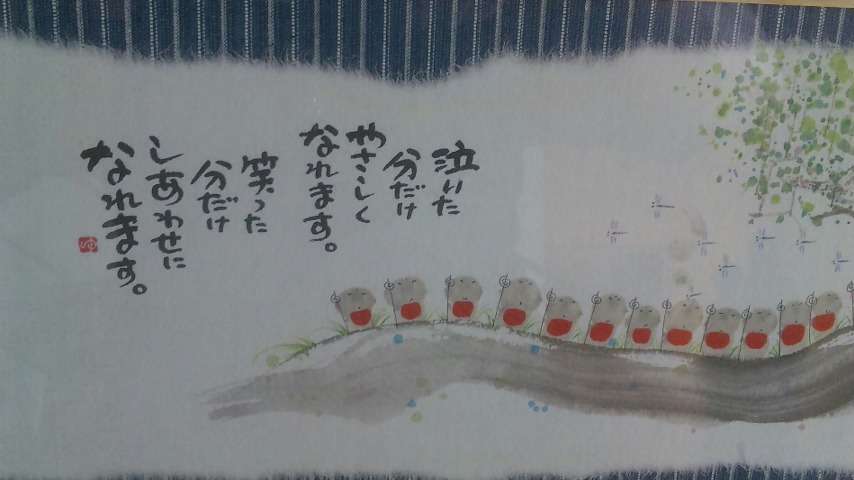 泣いた
分だけ
やさしく
なれます。
笑った
分だけ
しあわせに
なれます。